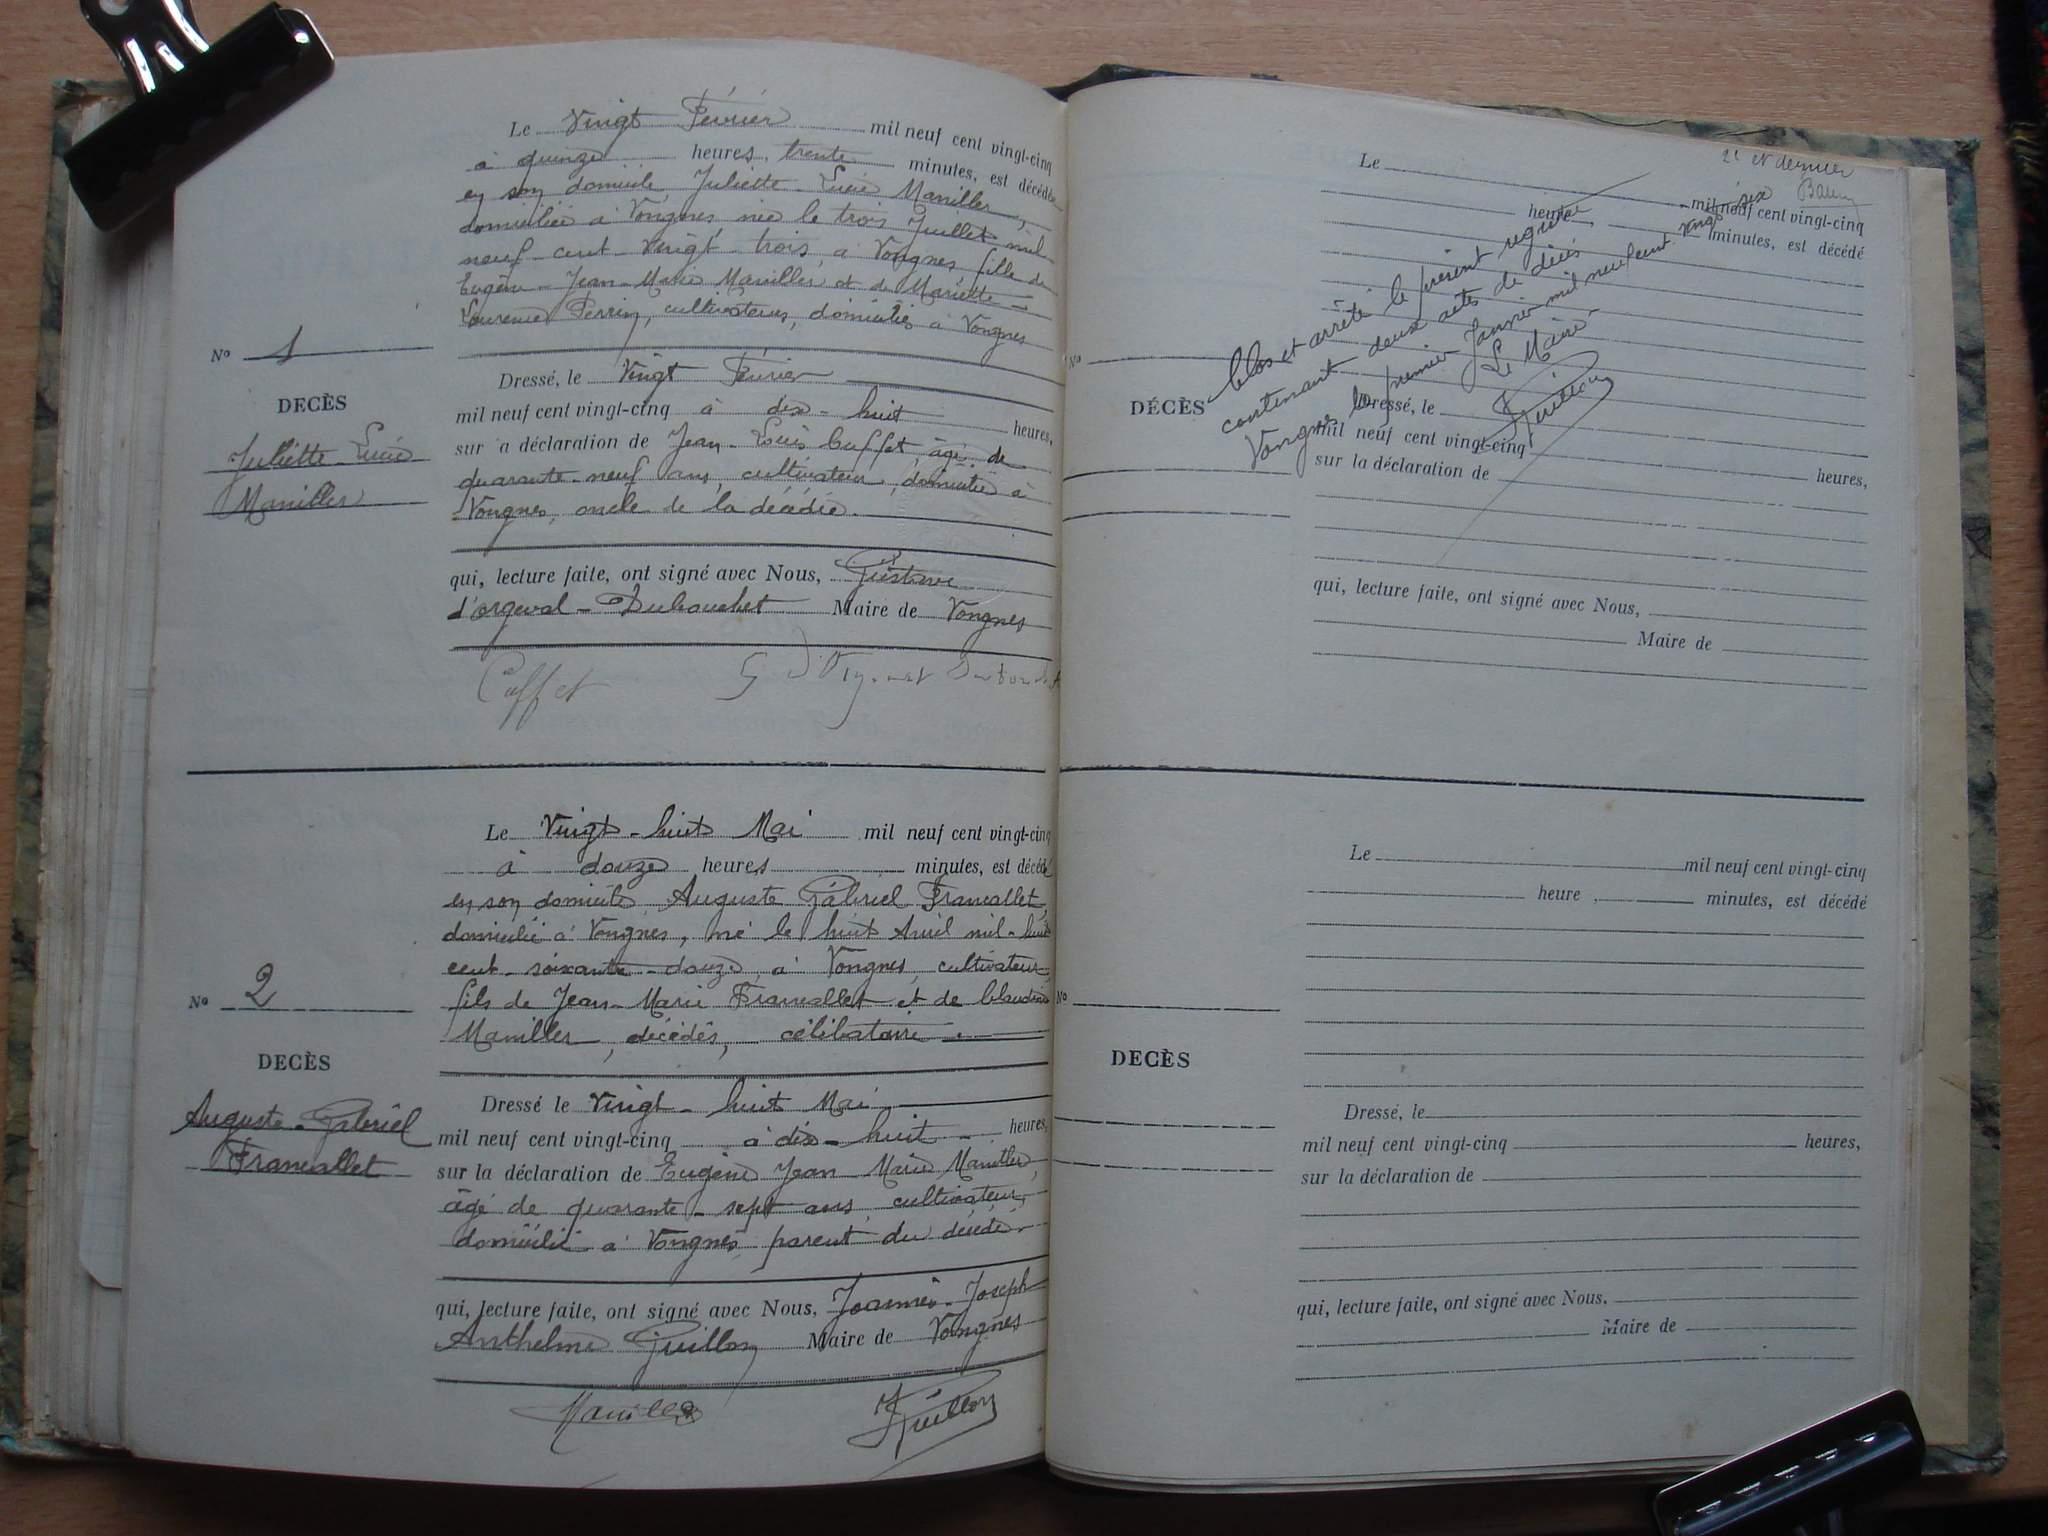 Le Vingt Février mil neuf cent vingt-cinq
à quinze heures, trente minutes, est décédée
en son domicile Juliette-Lucie Maniller,
domiciliée à Vongnes née le trois Juillet mil
neuf-cent-vingt-trois, à Vongnes, fille de
Eugène-Jean-Marie Maniller et de Mariette-
Laurence Perrin, cultivateurs, domiciliés à Vongnes
No 1
DECÈS
Juliette-Lucie
Maniller
Dressé, le Vingt Février
mil neuf cent vingt-cinq à dix-huit heures,
sur a déclaration de Jean-Louis Cuffet, âgé de
quarante-neuf ans, cultivateur, domicilié à
Vongnes, oncle de la décédée.
qui, lecture faite, ont signé avec Nous, Gustave
d'orgeval-Dubouchet Maire de Vongnes
Cuffet
Le Vingt-huit Mai mil neuf cent vingt-cinq
à douze heures minutes, est décédé
en son domicile, Auguste Gabriel Francallet,
domicilié à Vongnes, né le huit Avril mil-huit
cent-soixante-douze, à Vongnes, cultivateur,
fils de Jean-Marie Francallet et de Claudine
Maniller, décédés, célibataire
No 2
DECÈS
Auguste-Gabriel
Francallet
Dressé le Vingt-huit Mai
mil neuf cent vingt-cinq à dix-huit heures,
sur la déclaration de Eugène Jean Marie Maniller,
âgé de quarante-sept ans, cultivateur,
domicilié à Vongnes, parent du décédé.
qui, lecture faite, ont signé avec Nous, Joannès-Joseph
Anthelme Guillon Maire de Vongnes
Maniller
JGuillon
2e et dernier
Le mil neuf cent vingt-cinq
heure minutes, est décédé
Clos et arrêté le présent registre
contenant deux actes de décès
Vongnes le premier Janvier mil neuf cent vingt six
Le Maire
JGuillon
No
DÉCÈS
Dressé, le
mil neuf cent vingt-cinq heures,
sur la déclaration de
qui, lecture faite, ont signé avec Nous,
Maire de
Le mil neuf cent vingt-cinq
heure , minutes, est décédé
No
DECÈS
Dressé, le
mil neuf cent vingt-cinq heures,
sur la déclaration de
qui, lecture faite, ont signé avec Nous,
Maire de